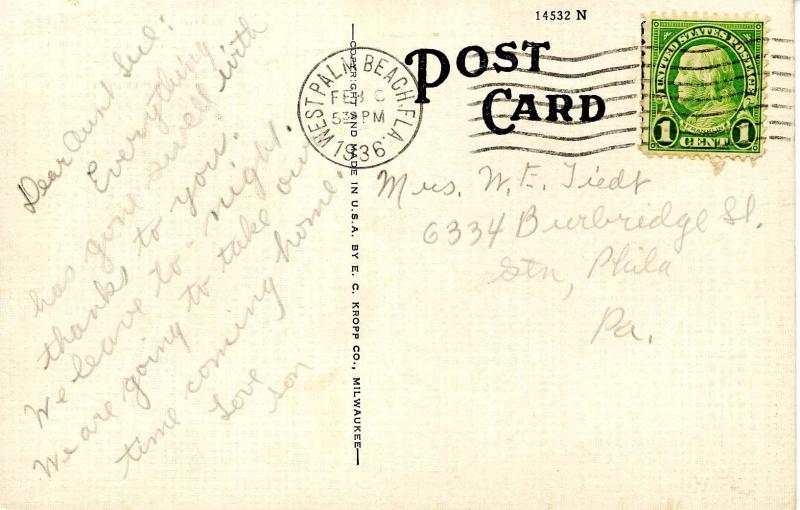 14532 N
POST
CARD
WEST PALM BEACH, FLA.
FEB 6
530 PM
1936
UNITED STATES POSTAGE
FRANKLIN
1 CENT 1
Dear Aunt
Everything
has gone swell with
thanks to you.
We leave to-night.
We are going to take our
time coming home.
Love
son
COPYRIGHT AND MADE IN U.S.A. BY E. C. KROPP CO., MILWAUKEE
Mrs. W. E. Tiedt
6334 Burbridge St.
Gtn, Phila
Pa.